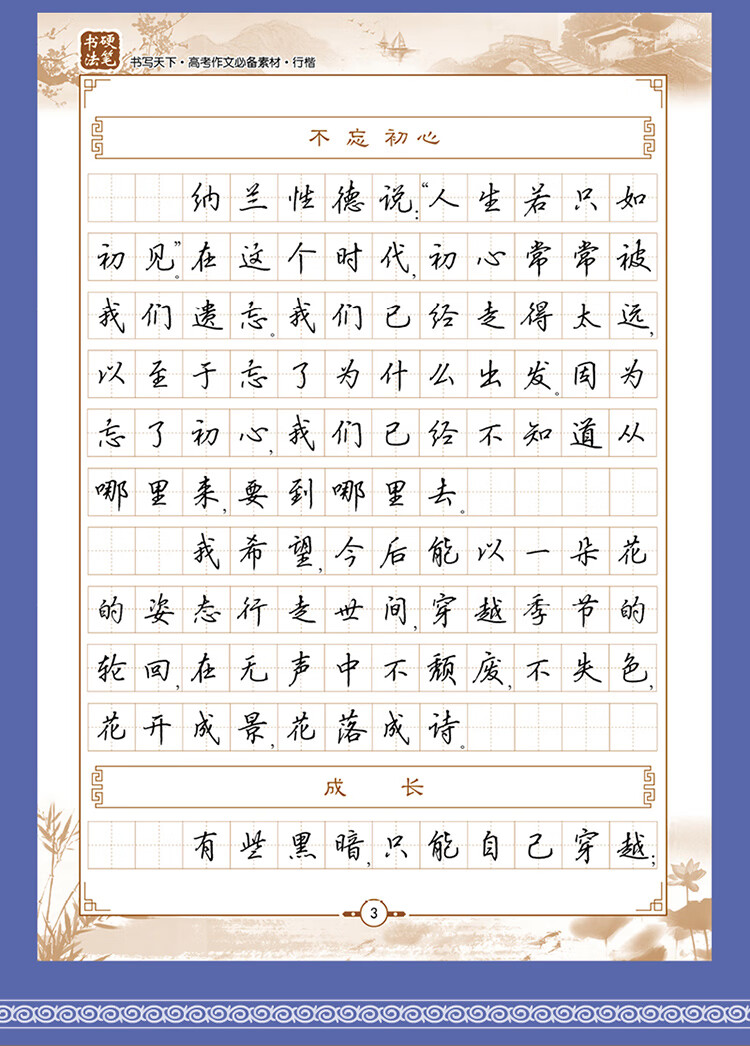 硬笔书法
书写天下·高考作文必备素材·行楷
不忘初心
纳兰性德说:“人生若只如
初见”。在这个时代,初心常常被
我们遗忘。我们已经走得太远,
以至于忘了为什么出发。因为
忘了初心,我们已经不知道从
哪里来,要到哪里去。
我希望,今后能以一朵花
的姿态行走世间,穿越季节的
轮回,在无声中不颓废,不失色,
花开成景,花落成诗。
成长
有些黑暗,只能自己穿越;
3